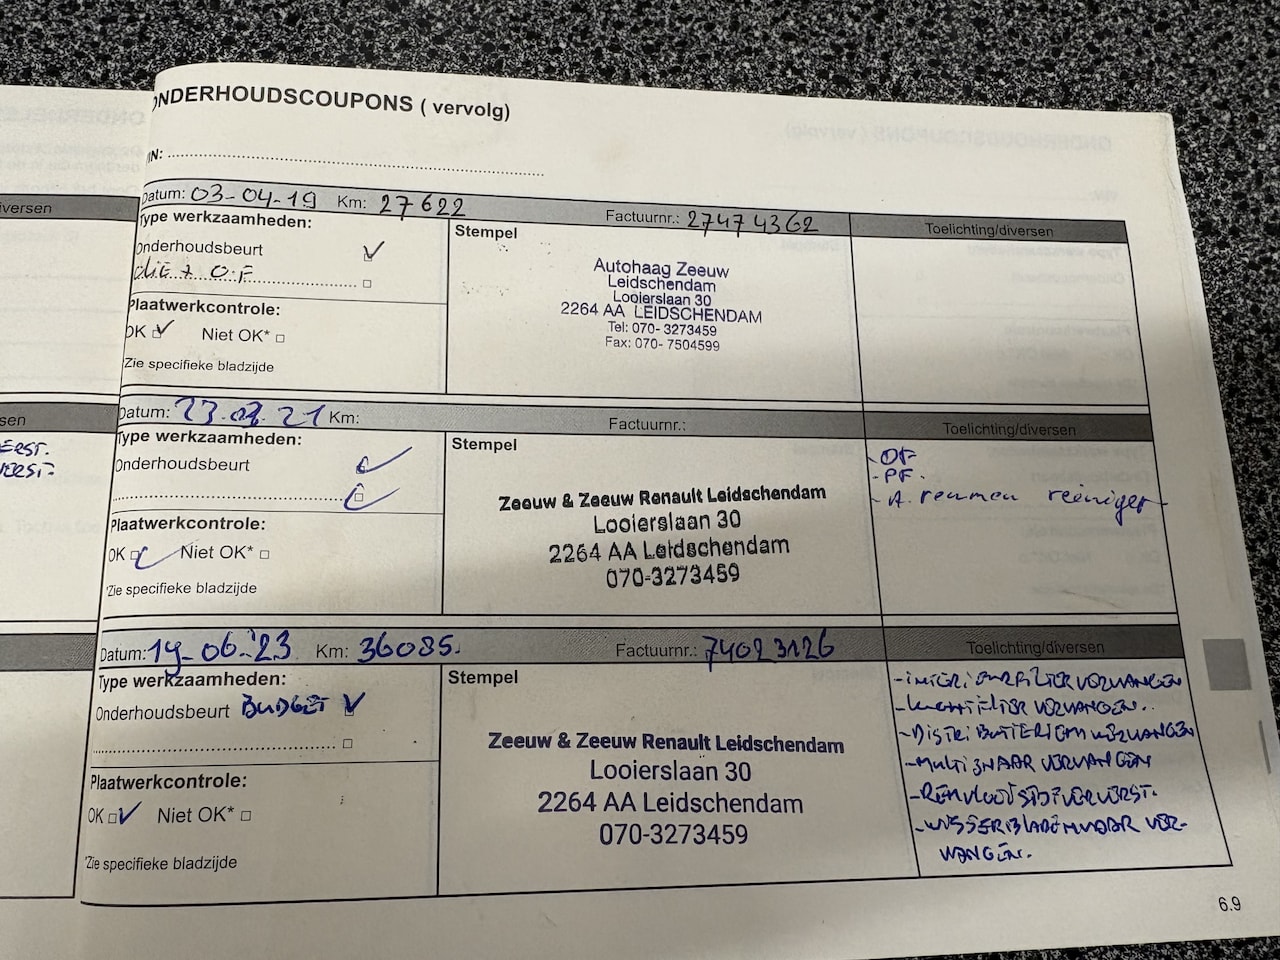 ONDERHOUDSCOUPONS ( vervolg)
IN:
versen
Datum: 03-04-19 Km: 27622 Factuurnr.: 27474362 Toelichting/diversen
Type werkzaamheden:
Onderhoudsbeurt
olie + O.F
Plaatwerkcontrole:
OK Niet OK*
*Zie specifieke bladzijde
Stempel
Autohaag Zeeuw
Leidschendam
Looierslaan 30
2264 AA LEIDSCHENDAM
Tel: 070- 3273459
Fax: 070- 7504599
sen
ERST.
VERST.
Datum: 21 Km: Factuurnr.: Toelichting/diversen
Type werkzaamheden:
Onderhoudsbeurt
Plaatwerkcontrole:
OK Niet OK*
*Zie specifieke bladzijde
Stempel
Zeeuw & Zeeuw Renault Leidschendam
Looierslaan 30
2264 AA Leidschendam
070-3273459
- OF
- PF.
- A. remmen reiniger
Datum: 19-06-'23 Km: 36085. Factuurnr.: 74023126 Toelichting/diversen
Type werkzaamheden:
Onderhoudsbeurt BUDGET
Plaatwerkcontrole:
OK Niet OK*
*Zie specifieke bladzijde
Stempel
Zeeuw & Zeeuw Renault Leidschendam
Looierslaan 30
2264 AA Leidschendam
070-3273459
- INTERIEURFILTER VERVANGEN
- LUCHTFILTER VERVANGEN.
- DISTRIBUTIERIEM VERVANGEN
- MULTISNAAR VERVANGEN
- REMVLOEISTOF VERVERST.
- WISSERBLADEN VOOR VER-
VANGEN.
6.9